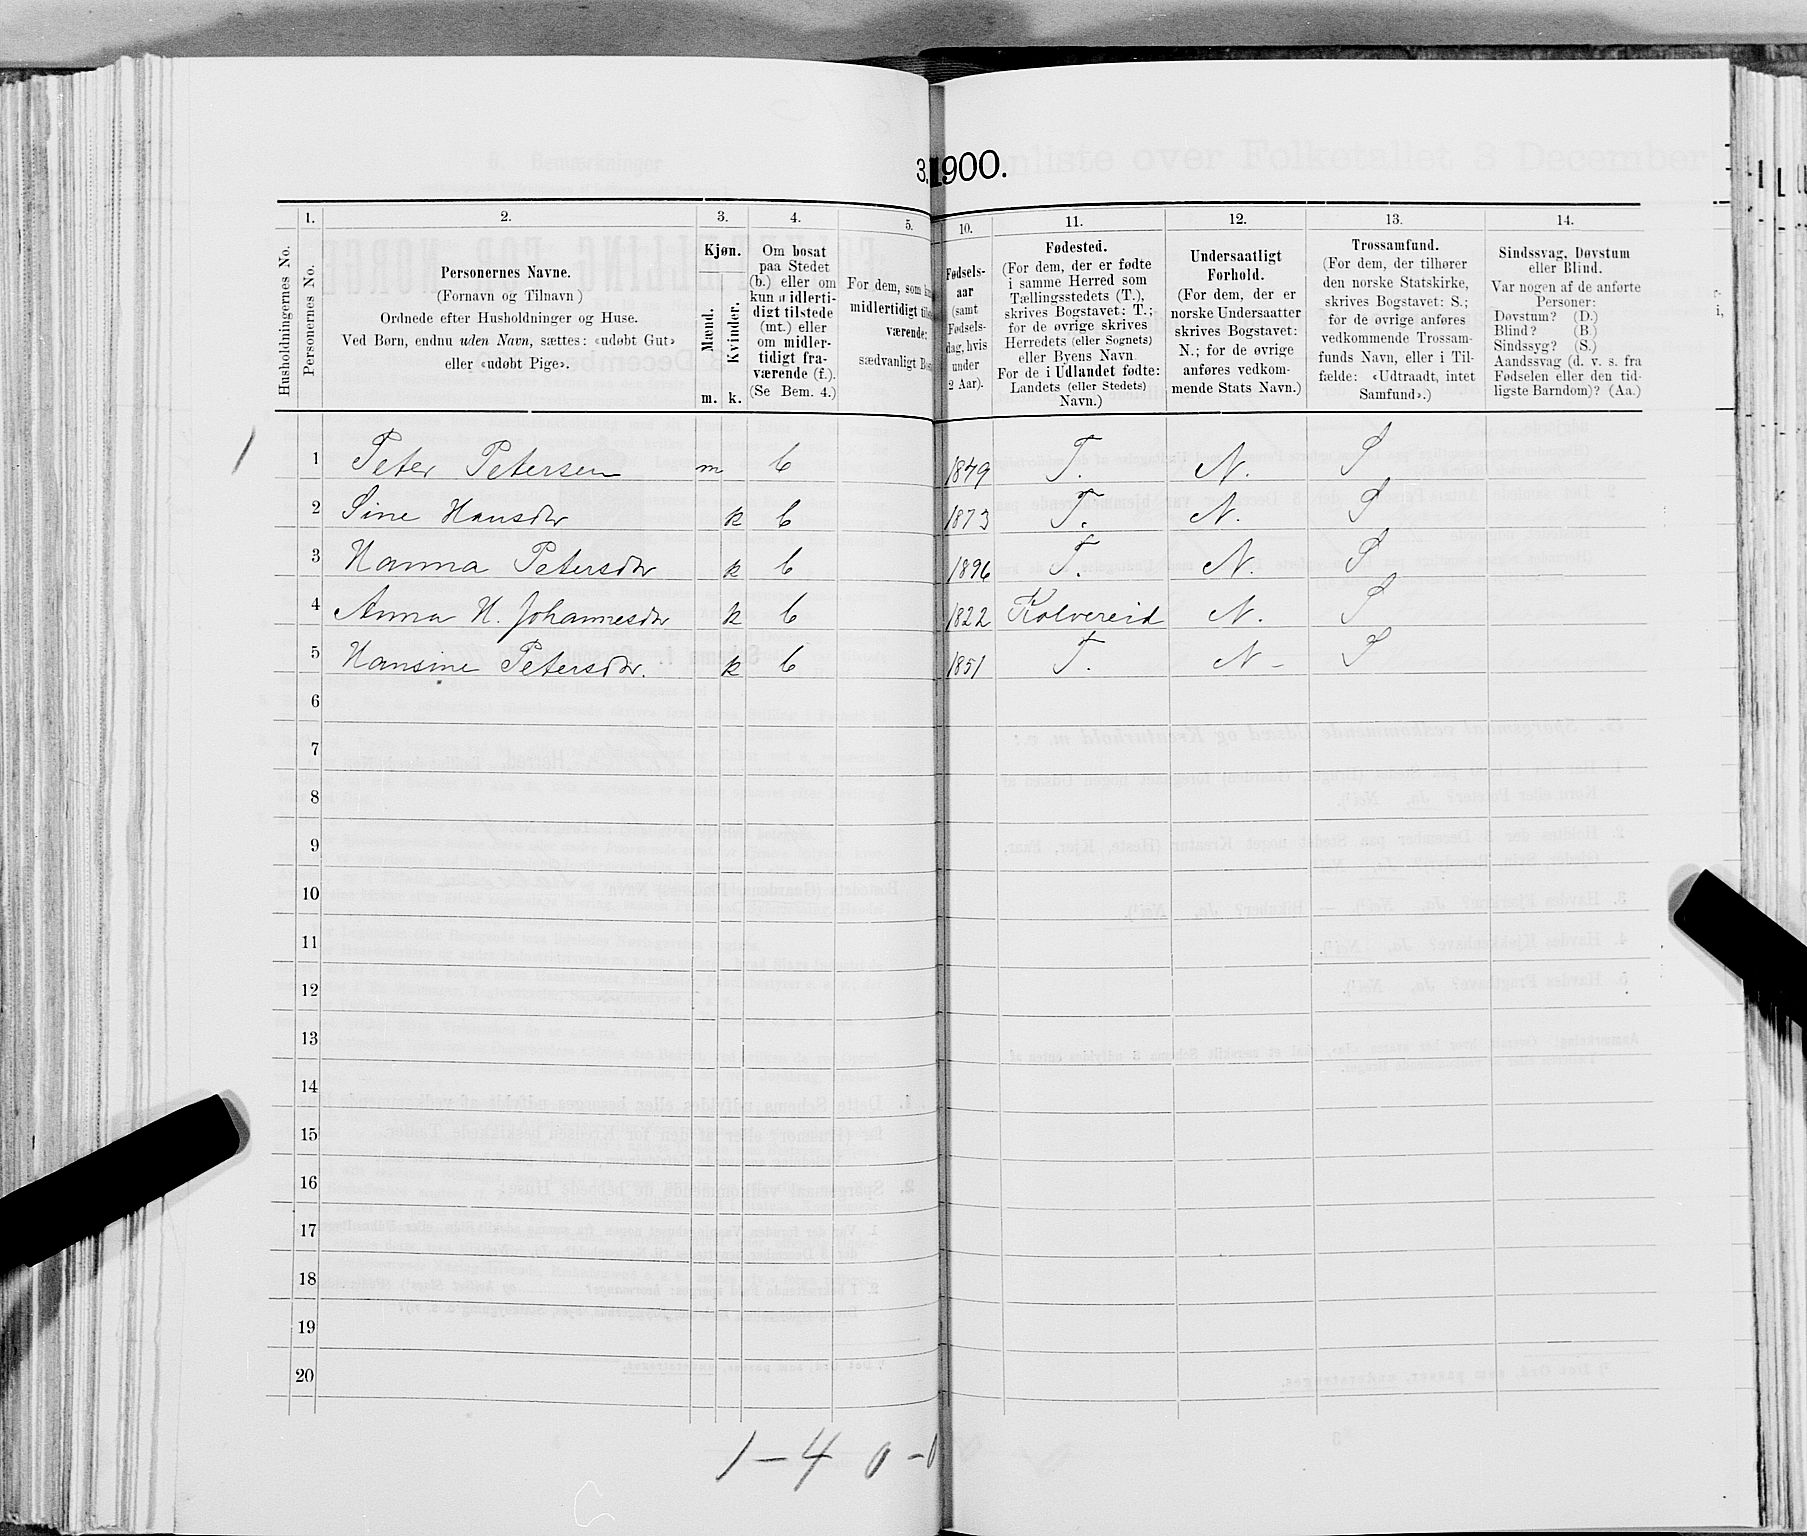 3. 1900.
1. 2. 3. 4. 5. 10. 11. 12. 13. 14.
Husholdningernes No.
Personernes No.
Personernes Navne.
(Fornavn og Tilnavn)
Ordnede efter Husholdninger og Huse.
Ved Børn, endnu uden Navn, sættes: «udøbt Gut»
eller «udøbt Pige».
Kjøn.
Mænd.
Kvinder.
m. k.
Om bosat
paa Stedet
(b.) eller om
kun midlerti-
digt tilstede
(mt.) eller
om midler-
tidigt fra-
værende (f.).
(Se Bem. 4.)
For dem, som
midlertidigt
værende:
sædvanligt
Fødsels-
aar
(samt
Fødsels-
dag, hvis
under
2 Aar).
Fødested.
(For dem, der er fødte
i samme Herred som
Tællingsstedets (T.),
skrives Bogstavet: T.;
for de øvrige skrives
Herredets (eller Sognets)
eller Byens Navn.
For de i Udlandet fødte:
Landets (eller Stedets)
Navn.)
Undersaatligt
Forhold.
(For dem, der er
norske Undersaatter
skrives Bogstavet:
N.; for de øvrige
anføres vedkom-
mende Stats Navn.)
Trossamfund.
(For dem, der tilhører
den norske Statskirke,
skrives Bogstavet: S.;
for de øvrige anføres
vedkommende Trossam-
funds Navn, eller i Til-
fælde: «Udtraadt, intet
Samfund».)
Sindssvag, Døvstum
eller Blind.
Var nogen af de anførte
Personer:
Døvstum? (D.)
Blind? (B.)
Sindssyg? (S.)
Aandssvag (d. v. s. fra
Fødselen eller den tid-
ligste Barndom)? (Aa.)
1 1 Peter Petersen m b 1879 T. N. S
2 Sine Hansdtr k b 1873 T. N. S
3 Hanna Petersdtr k b 1896 T. N. S
4 Anna H. Johannesdtr k b 1822 Kolvereid N. S
5 Hansine Petersdtr. k b 1851 T. N- S
6
7
8
9
10
11
12
13
14
15
16
17
18
19
20
1-4 0-